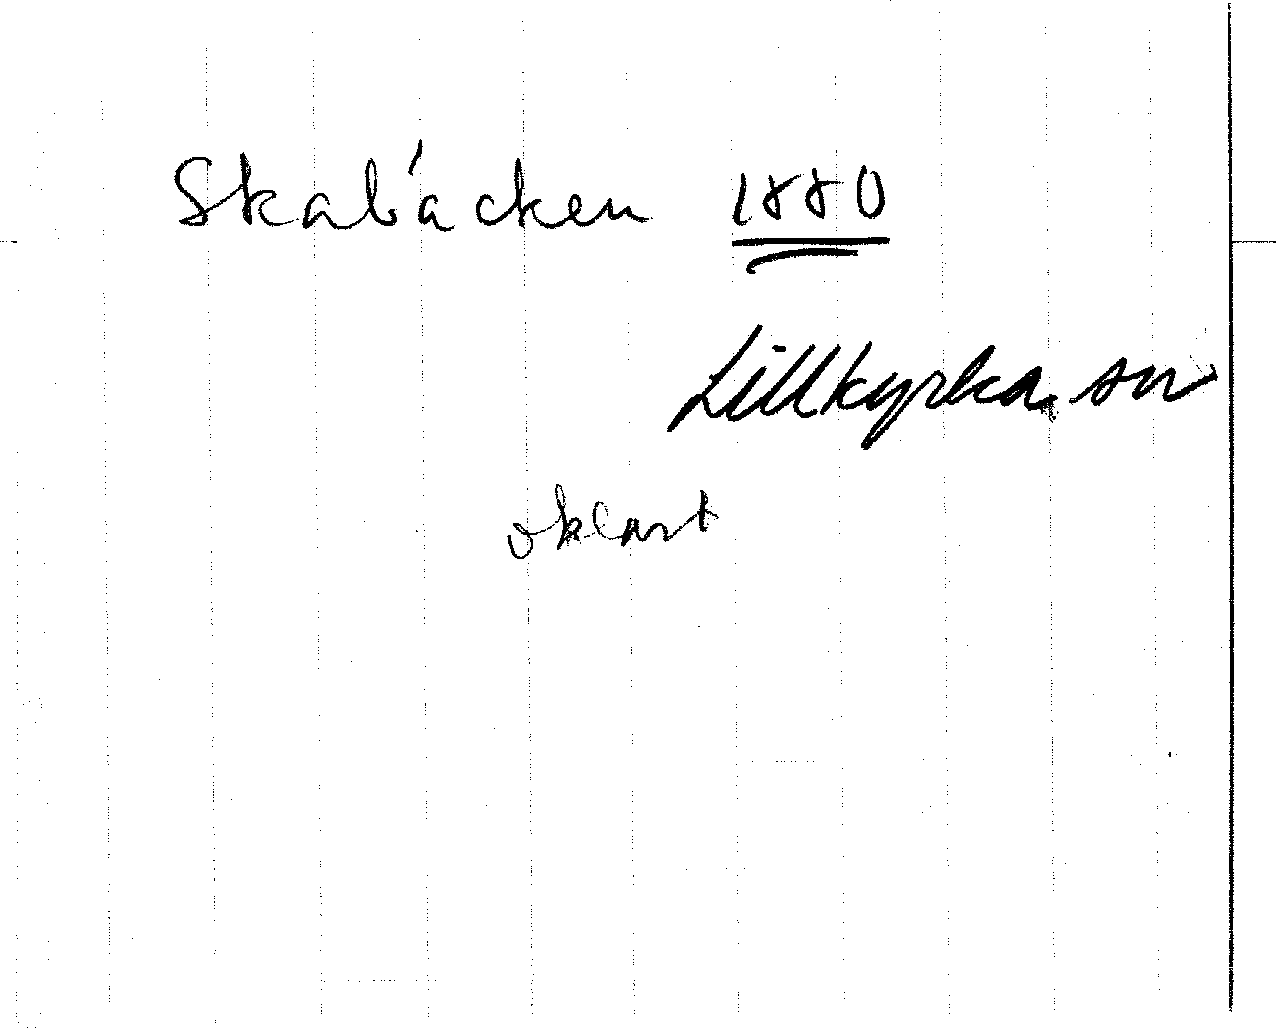 Skabácken 1880
Lillkyrka sn
oklart